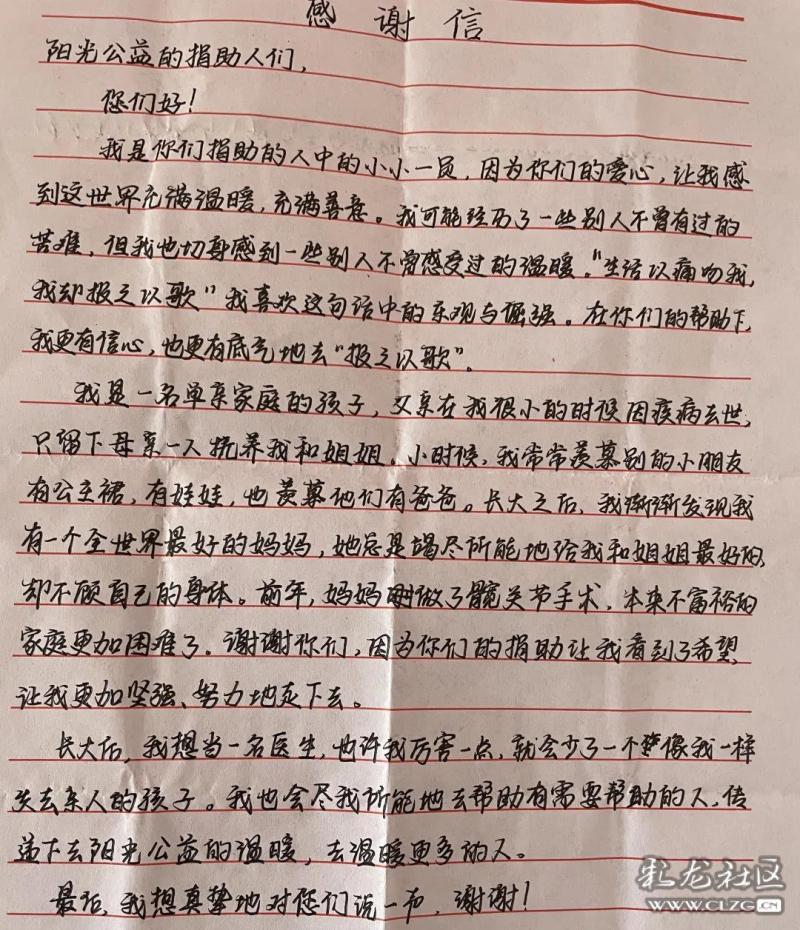 感谢信
阳光公益的捐助人们,
您们好!
我是你们捐助的人中的小小一员,因为你们的爱心,让我感
到这世界充满温暖,充满善意。我可能经历了一些别人不曾有过的
苦难,但我也切身感到一些别人不曾感受过的温暖。"生活以痛吻我,
我却报之以歌"我喜欢这句话中的乐观与倔强。在你们的帮助下,
我更有信心,也更有底气地去"报之以歌"。
我是一名单亲家庭的孩子,父亲在我很小的时候因疾病去世,
只留下母亲一人抚养我和姐姐。小时候,我常常羡慕别的小朋友
有公主裙,有娃娃,也羡慕他们有爸爸。长大之后,我渐渐发现我
有一个全世界最好的妈妈,她总是竭尽所能地给我和姐姐最好的,
却不顾自己的身体。前年,妈妈做了髋关节手术,本来不富裕的
家庭更加困难了。谢谢你们,因为你们的捐助让我看到了希望,
让我更加坚强、努力地走下去。
长大后,我想当一名医生,也许我厉害一点,就会少了一个像我一样
失去亲人的孩子。我也会尽我所能地去帮助有需要帮助的人,传
递下去阳光公益的温暖,去温暖更多的人。
最后,我想真挚地对您们说一声,谢谢!
龙社区
WWW.CLZG.CN